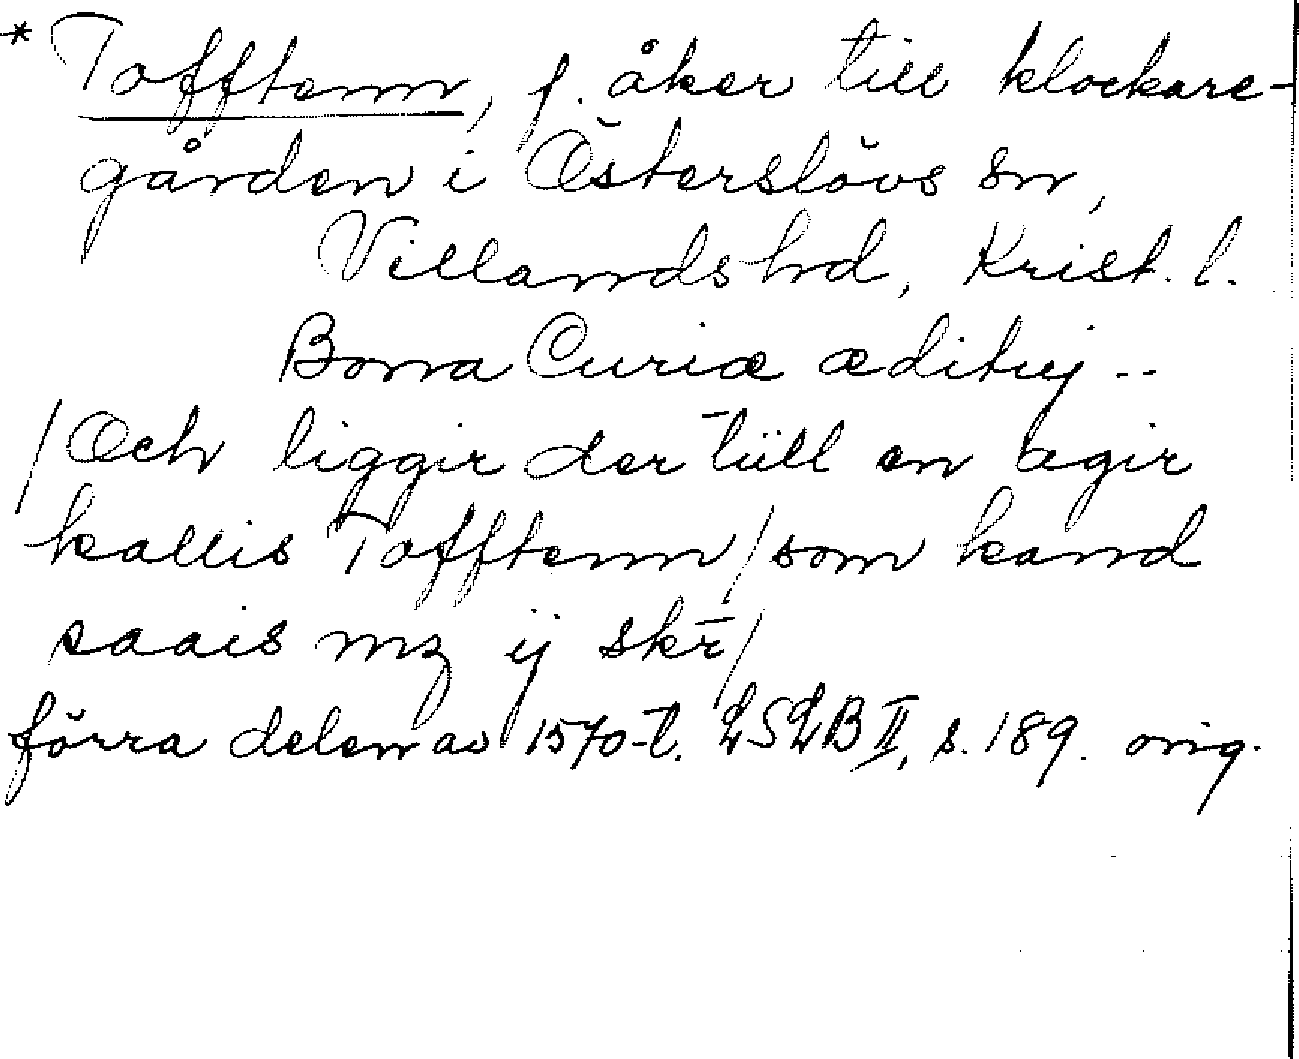 * Tofftenn, f. åker till klockare-
gården i Österslövs sn,
Villands hd, Krist. l.
Bona Curiæ ædituj --
/ Och liggir der tiill en agir
kallis Tofftenn / som kand
saais mz ij skr̄ /
förra delen av 1570-t. LSLB II, s. 189. orig.